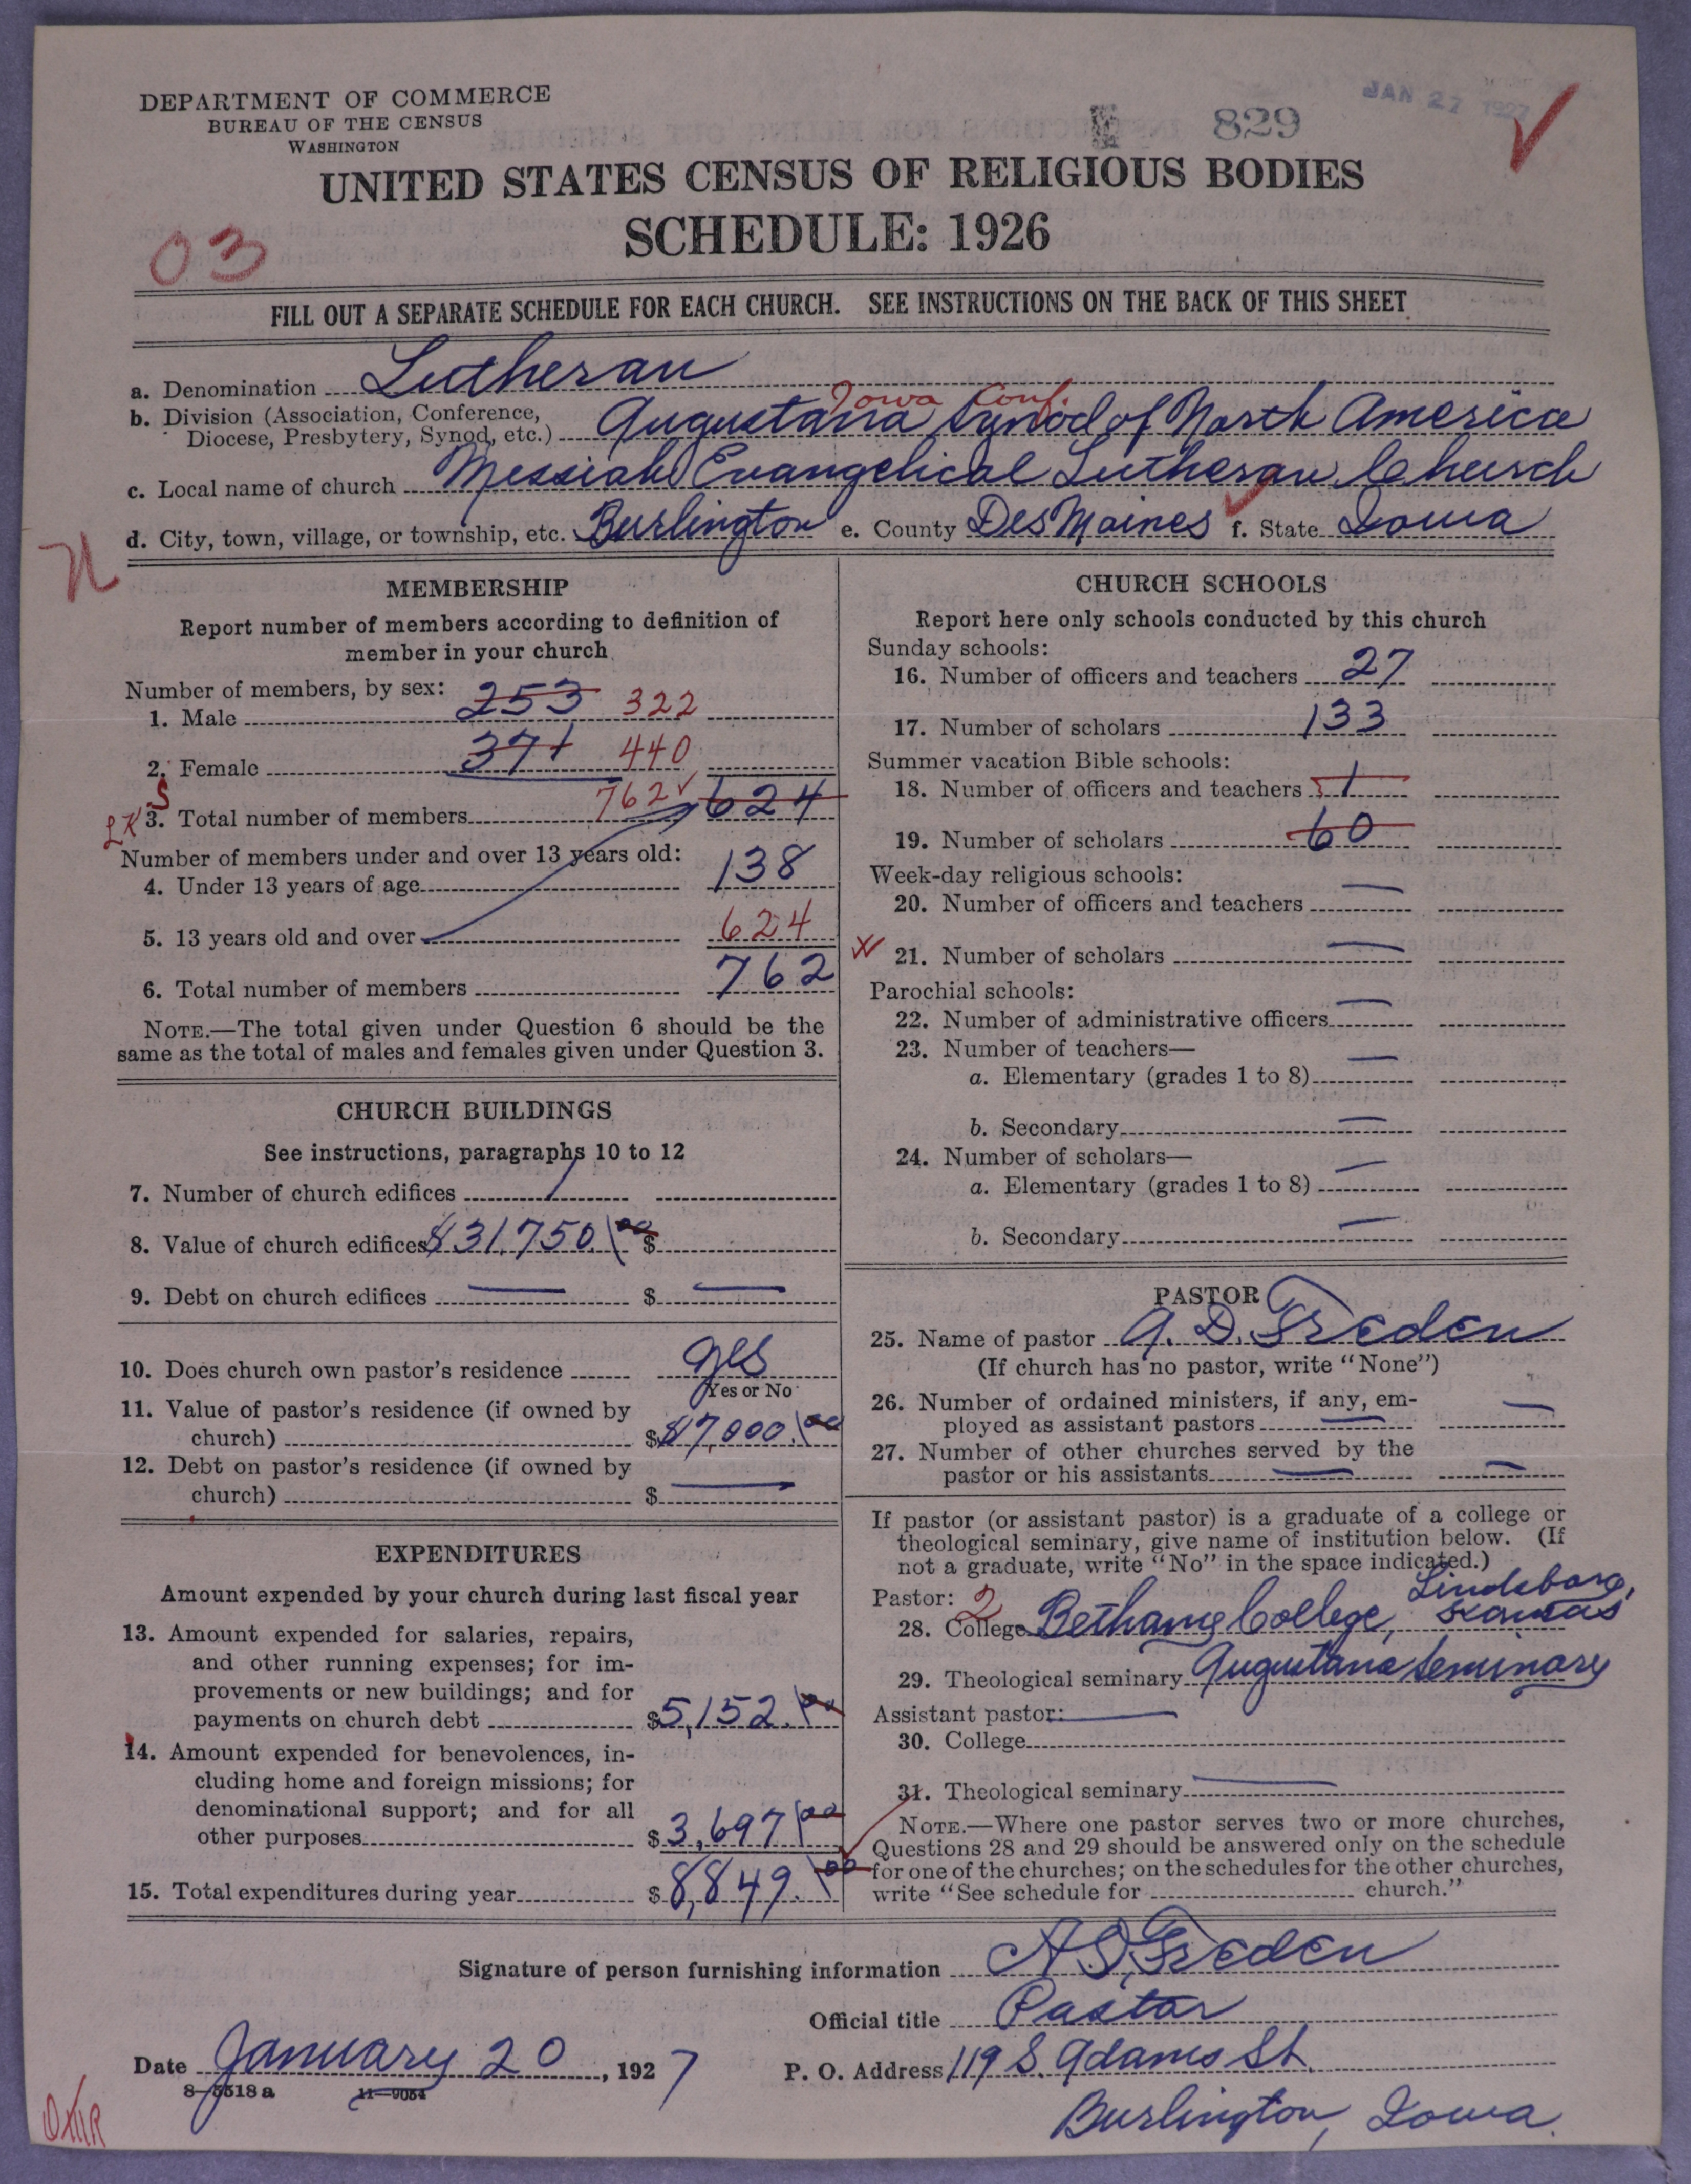 JAN 27 1927
829
DEPARTMENT OF COMMERCE
BUREAU OF THE CENSUS
WASHINGTON
UNITED STATES CENSUS OF RELIGIOUS BODIES
SCHEDULE: 1926
03
FILL OUT A SEPARATE SCHEDULE FOR EACH CHURCH. SEE INSTRUCTIONS ON THE BACK OF THIS SHEET
a. Denomination Lutheran
Iowa Conf.
b. Division (Association, Conference,
Diocese, Presbytery, Synod, etc.) Augustana Synod of North America
c. Local name of church Messiah Evangelical Lutheran Church
d. City, town, village, or township, etc. Burlington e. County Des Moines f. State Iowa
MEMBERSHIP
Report number of members according to definition of
member in your church
Number of members, by sex:
1. Male 253 322
2. Female 371 440
3. Total number of members 762 624
Number of members under and over 13 years old:
4. Under 13 years of age 138
5. 13 years old and over 624
6. Total number of members 762
NOTE.—The total given under Question 6 should be the
same as the total of males and females given under Question 3.
CHURCH BUILDINGS
See instructions, paragraphs 10 to 12
7. Number of church edifices 1
8. Value of church edifices $31,750.00 $
9. Debt on church edifices — $ —
10. Does church own pastor's residence yes
Yes or No
11. Value of pastor's residence (if owned by
church) $ $7,000.00
12. Debt on pastor's residence (if owned by
church) $ —
EXPENDITURES
Amount expended by your church during last fiscal year
13. Amount expended for salaries, repairs,
and other running expenses; for im-
provements or new buildings; and for
payments on church debt $5,152.00
14. Amount expended for benevolences, in-
cluding home and foreign missions; for
denominational support; and for all
other purposes $3,697.00
15. Total expenditures during year $8,849.00
CHURCH SCHOOLS
Report here only schools conducted by this church
Sunday schools:
16. Number of officers and teachers 27
17. Number of scholars 133
Summer vacation Bible schools:
18. Number of officers and teachers 1
19. Number of scholars 60
Week-day religious schools:
20. Number of officers and teachers —
21. Number of scholars —
Parochial schools:
22. Number of administrative officers —
23. Number of teachers—
a. Elementary (grades 1 to 8) —
b. Secondary —
24. Number of scholars—
a. Elementary (grades 1 to 8) —
b. Secondary —
PASTOR
25. Name of pastor A. D. Freden
(If church has no pastor, write "None")
26. Number of ordained ministers, if any, em-
ployed as assistant pastors — —
27. Number of other churches served by the
pastor or his assistants — —
If pastor (or assistant pastor) is a graduate of a college or
theological seminary, give name of institution below. (If
not a graduate, write "No" in the space indicated.)
Pastor: 2
28. College Bethany College, Lindsborg, Kansas
29. Theological seminary Augustana Seminary
Assistant pastor: —
30. College
31. Theological seminary —
NOTE.—Where one pastor serves two or more churches,
Questions 28 and 29 should be answered only on the schedule
for one of the churches; on the schedules for the other churches,
write "See schedule for church."
Signature of person furnishing information A D Freden
Official title Pastor
Date January 20, 1927
P. O. Address 119 S. Adams St.
Burlington, Iowa.
8-5518 a 11-9054